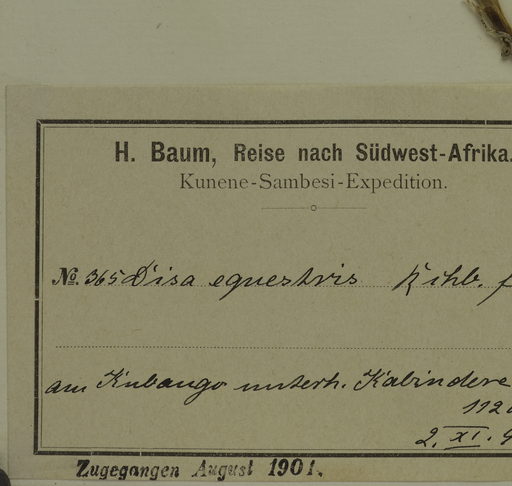 H. Baum, Reise nach Südwest-Afrika.
Kunene-Sambesi-Expedition.
No. 365 Disa equestris Rchb. f
am Kubango unterh. Kabindere
112
2. XI. 9
Zugegangen August 1901.